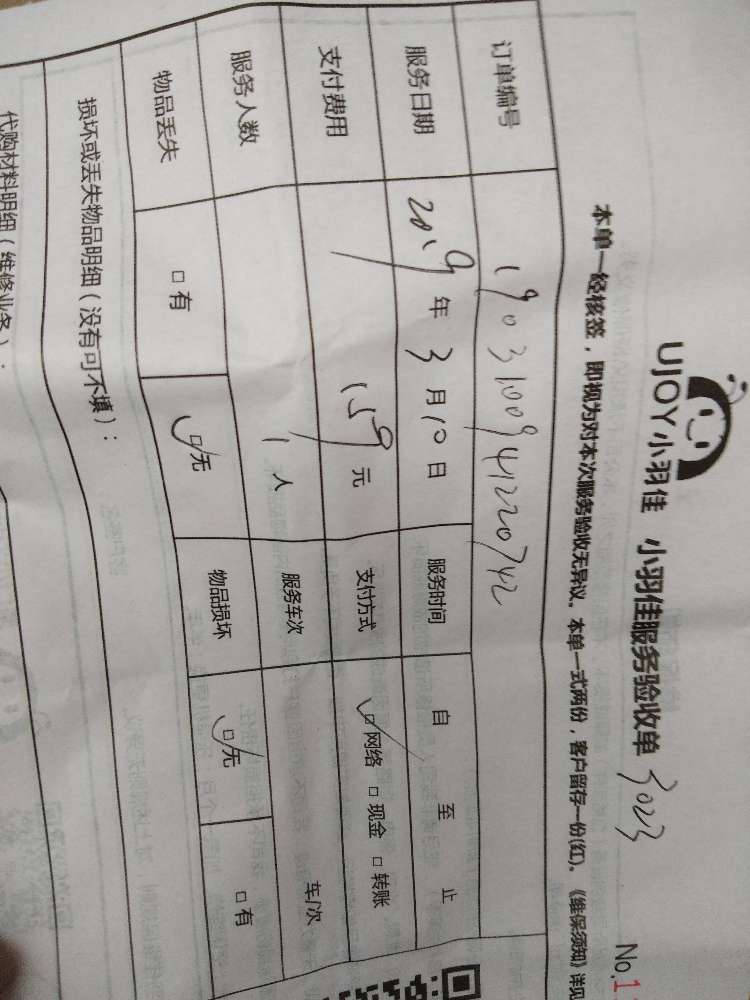 UJOY小羽佳 小羽佳服务验收单 3023 No.1
本单一经核签，即视为对本次服务验收无异议。本单一式两份，客户留存一份(红)。《维保须知》详见
订单编号 1903100941220742
服务日期 2019年3月10日 服务时间 自 至 止
支付费用 159元 支付方式 ☑网络 □现金 □转账
服务人数 1人 服务车次 车/次
物品丢失 □有 ☑无 物品损坏 ☑无 □有
损坏或丢失物品明细（没有可不填）：
代购材料明细（维修业务）：